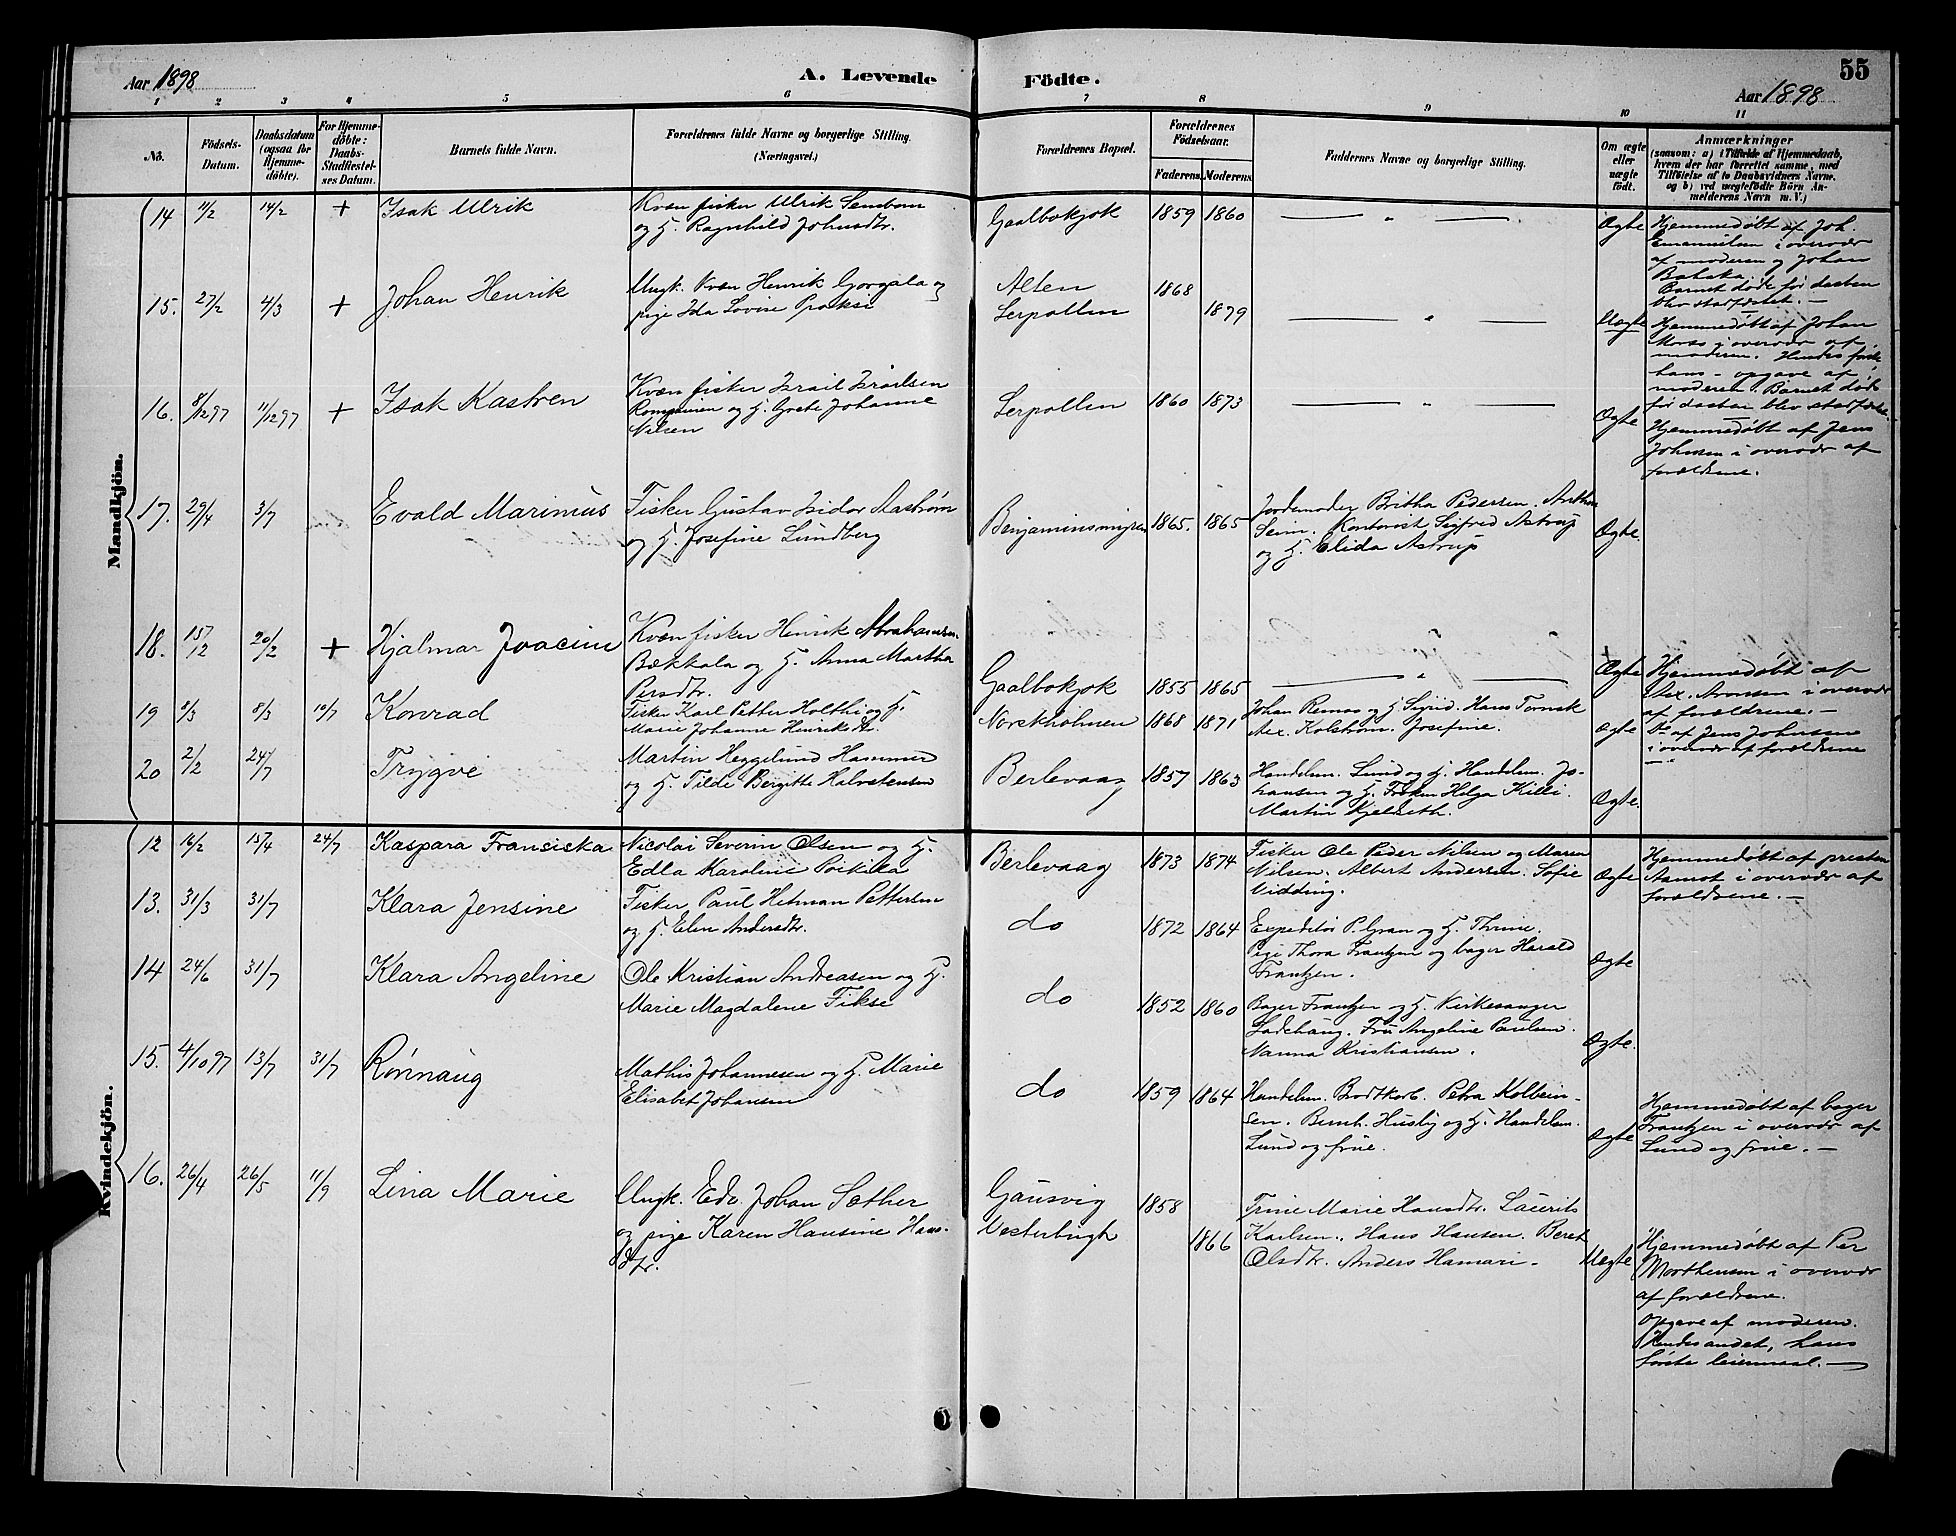 Aar 1898
A. Levende Födte.
55
Aar 1898
1 2 3 4 5 6 7 8 9 10 11
No.
Födsels-Datum.
Daabsdatum (ogsaa for Hjemme-döbte).
For Hjemme-döbte: Daabs-Stadfestel-ses Datum.
Barnets fulde Navn.
Forældrenes fulde Navne og borgerlige Stilling. (Næringsvei.)
Forældrenes Bopæl.
Forældrenes Födselsaar.
Faderens. Moderens.
Faddernes Navne og borgerlige Stilling.
Om ægte eller uægte födt.
Anmærkninger
(saasom: a) i Tilfælde af Hjemmedaab,
hvem der har forrettet samme, med
Tilföielse af to Daabsvidners Navne,
og b) ved uægtefödte Börn An-
melderens Navn m. V.)
Mandkjön.
14 11/2 14/2 + Isak Ulrik
Kvæn fisker Ulrik
og H. Ragnhild Johnsdtr.
Gaalbokjok 1859 1860 — " — Ægte
Hjemmedøbt af Joh.
Emanuilsen i overvær
af moderen og Johan
Barnet døde før daaben
blev stadfæstet. —
15. 27/2 4/3 + Johan Henrik
Ungk. Kvæn Henrik Gorgala og
pige Ida Lovise
Alten 1868
Lerpollen 1879 — " — Uægte
Hjemmedøbt af Johan
i overvær af
moderen. Hendes første
hans – opgave af
moderen. Barnet døde
før daaben blev stadfæstet.
16. 8/12 97 11/12 97 + Isak Kastren
Kvæn fisker Israil Israilsen
og H. Grete Johanne
Nilsen
Lerpollen 1860 1873 — " — Ægte
Hjemmedøbt af Jens
Johnsen i overvær af
forældrene.
17. 29/4 3/7 Evald Marinius
Fisker Gustav Isidor Aastrøm
og H. Josefine Lundberg
1865. 1865
Jordemoder Britha Pedersen. Anthon
Seim. Kontorist Sigfred Astrup
og H. Elida Astrup
Ægte.
18. 15/12 20/2 + Hjalmar Joacim
Kvæn fisker Henrik Abrahamsen
Bækkala og H. Anna Martha
Persdtr.
Gaalbokjok 1855 1865 — " — Ægte
Hjemmedøbt af
Alex. Arnesen i overvær
af forældrene. —
19 8/3 10/7 Konrad
Fisker Karl Petter Holthi og H.
Marie Johanne Henriksdtr.
Norskholmen 1868 1871
Johan Remas og H. Sigrid. Hans Tornsk
Alex. Kolstrøm. Josefine.
Ægte
Do af Jens Johnsen
i overvær af forældrene
20 2/12 24/7 Trygve
Martin Heggelund Hammer
og H. Tilde Bergitte Halvstensen
Berlevaag 1857 1863
Handelsm. Lund og H. Handelsm. Jo-
hansen og H. Frøken Helga Killi.
Martin Kjeldseth.
Ægte.
Kvindekjön.
12 16/2 15/4 24/7 Kaspara Fransiska
Nicolai Severin Olsen og H.
Edla Karoline Poikika
Berlevaag 1873 1874
Fisker Ole Peder Nilsen og Maren
Nilsen. Albert Andersen. Sofie
Vidding.
Ægte
Hjemmedøbt af presten
Aamot i overvær af
forældrene. —
13. 31/3 31/7 Klara Jensine
Fisker Paul Hetman Pettersen
og H. Elen Andersdtr.
do 1872 1864
Expeditør P. Gran og H. Thrine.
Pige Thora Frantzen og bager Harald
Frantzen.
Ægte
14 24/6 31/7 Klara Angeline
Ole Kristian Andreasen og H.
Marie Magdalene Fikse
do 1852 1860
Bager Frantzen og H. Kirkesanger
Ladehaug. Fru Angeline Paulsen.
Nanna Kristiansen.
Ægte.
15. 4/10 97 13/7 31/7 Rønnaug
Mathis Johannesen og H. Marie
Elisabet Johansen
do 1859 1864
Handelsm. Brodtkorb. Petra Kolbein-
sen. Bernh. Husby og H. Handelsm.
Lund og frue.
Ægte
Hjemmedøbt af bager
Frantzen i overvær af
Lund og frue. —
16. 26/4 26/5 11/9 Lina Marie
Ungk. Edv. Johan Sæther
og pige Karen Hansine Hans-
dtr.
Gausvig 1858
Vesterbugt 1866
Trine Marie Hansdtr. Laurits
Karlsen. Hans Hansen. Beret
Olsdtr. Anders Hamari.
Uægte
Hjemmedøbt af Per
Morthensen i overvær
af forældrene.
Opgave af moderen.
Hendes andet, hans
første leiermaal. —